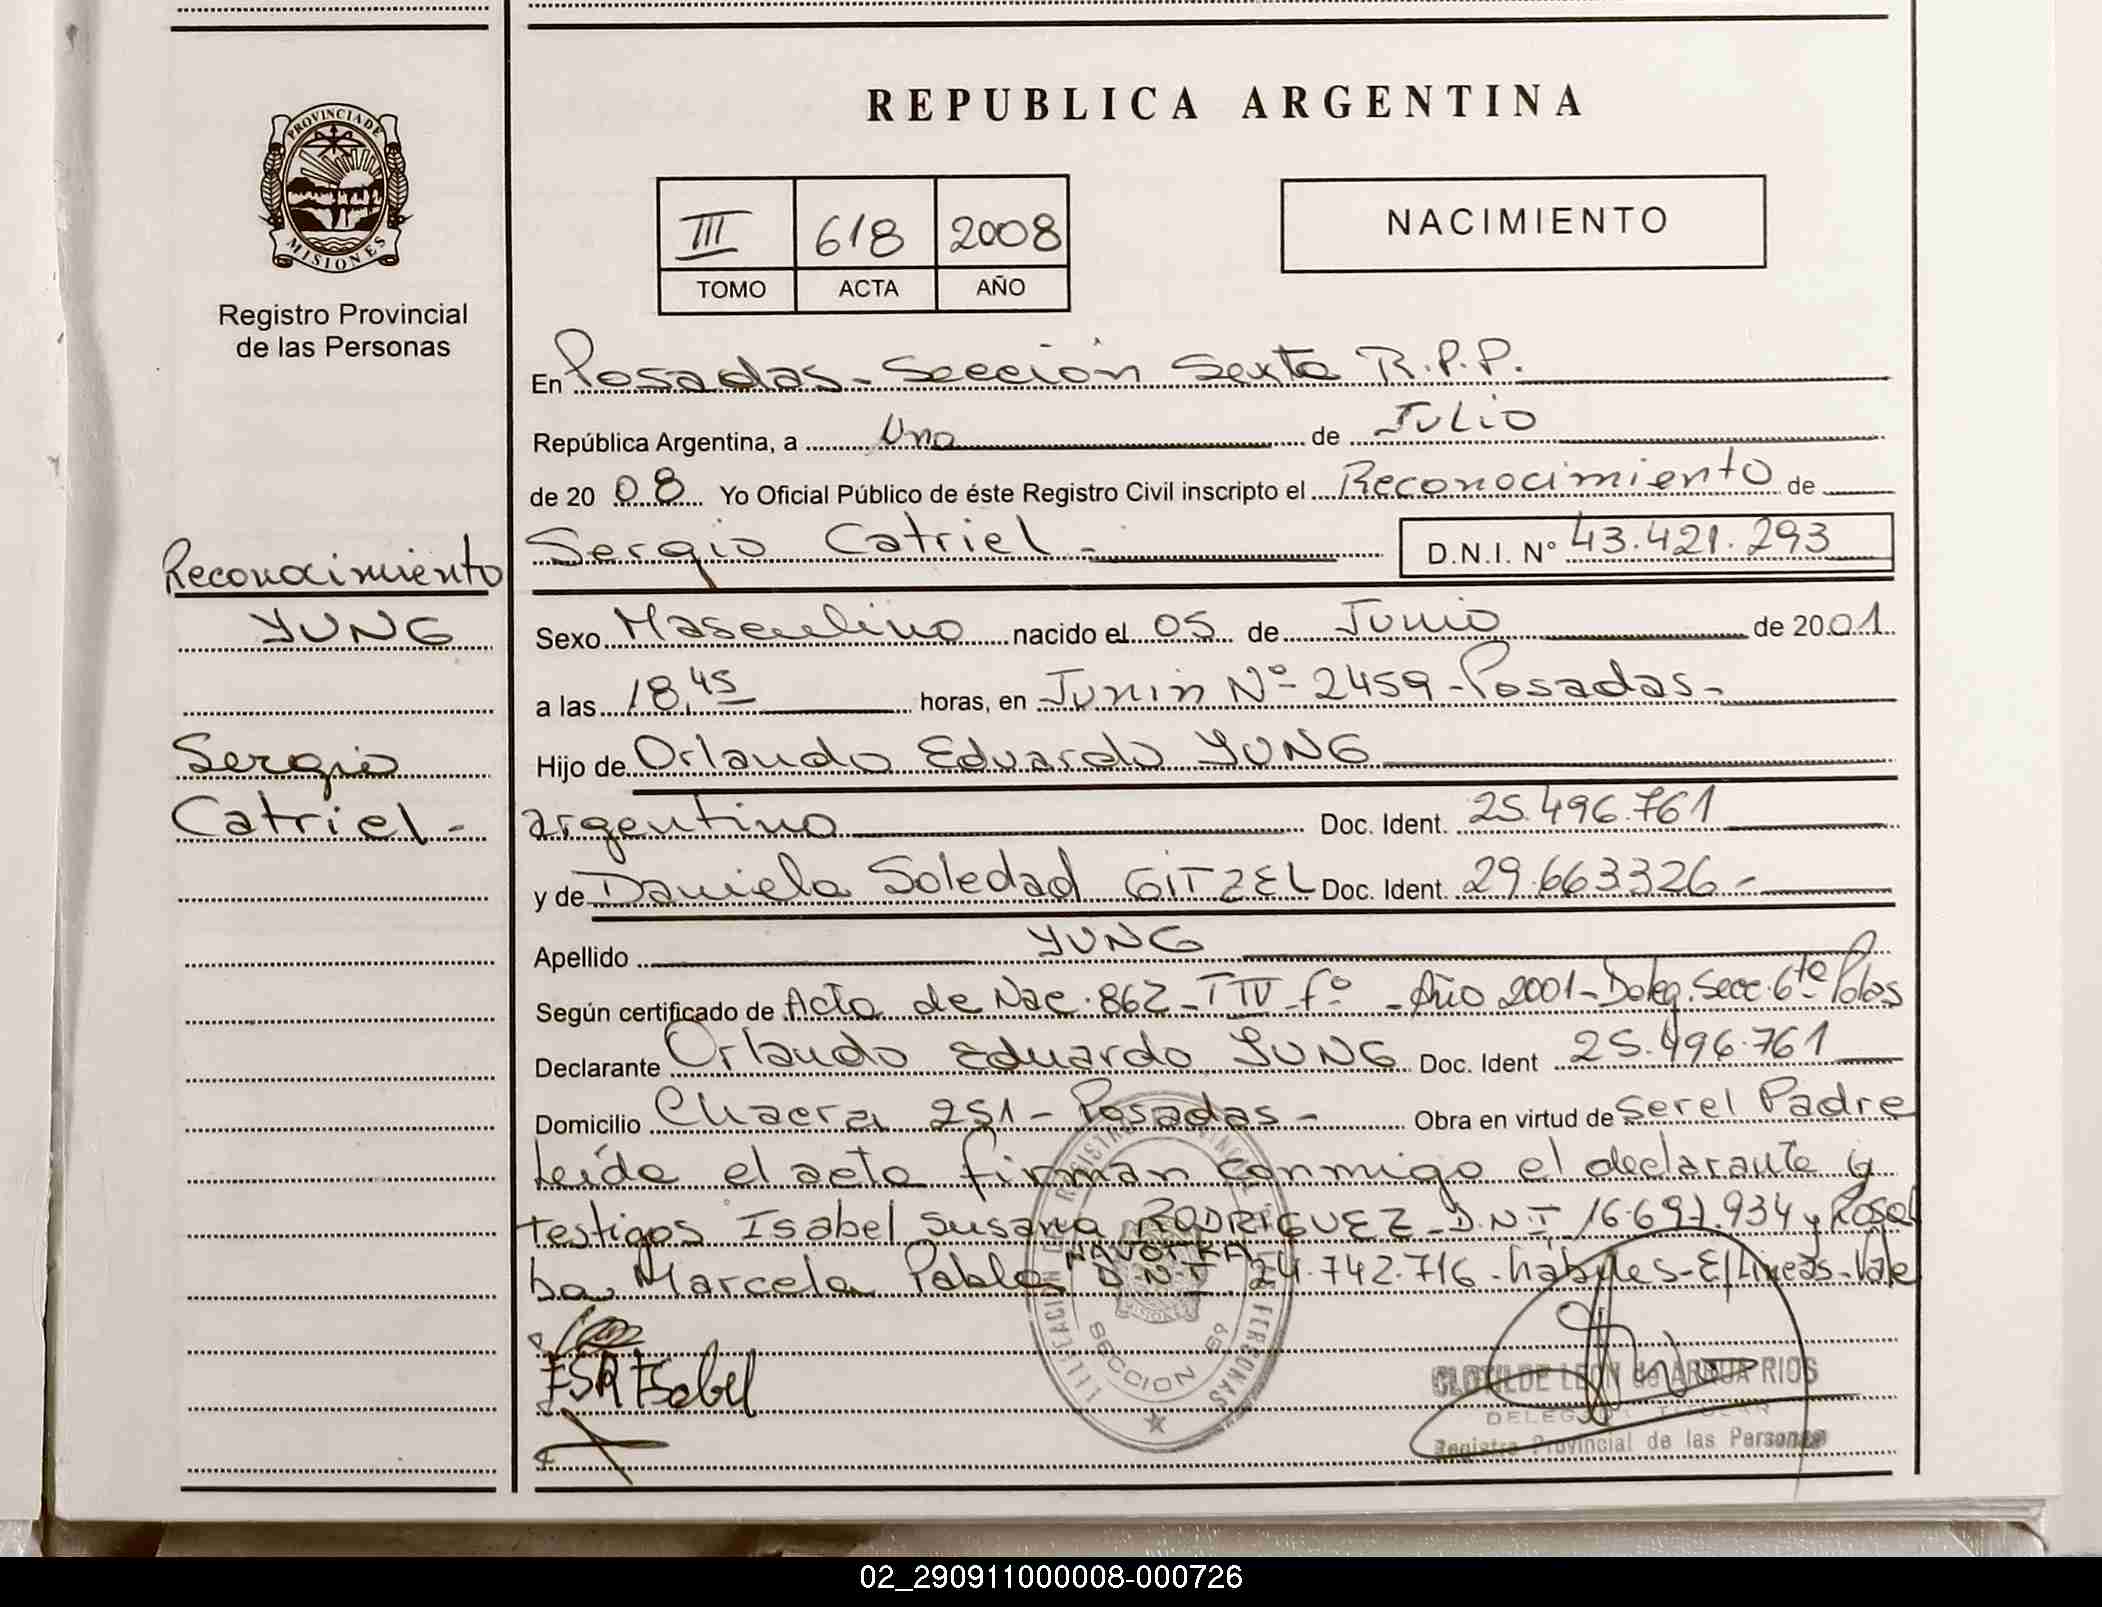 REPUBLICA ARGENTINA
PROVINCIA DE MISIONES
Registro Provincial
de las Personas
III 618 2008
TOMO ACTA AÑO
NACIMIENTO
En Posadas - Sección Sexta R.P.P.
República Argentina, a Uno de Julio
de 20 08 Yo Oficial Público de éste Registro Civil inscripto el Reconocimiento de
Sergio Catriel - D.N.I. Nº 43.421.293
Reconocimiento
YUNG
Sergio
Catriel -
Sexo Masculino nacido el 05 de Junio de 20 01
a las 18,45 horas, en Junin Nº 2459 - Posadas -
Hijo de Orlando Eduardo YUNG
argentino Doc. Ident. 25.496.761
y de Daniela Soledad GITZEL Doc. Ident. 29.663326 -
Apellido YUNG
Según certificado de Acta de Nac. 862 - T IV - fº - Año 2001 - Deleg. Secc. 6ta Pdas
Declarante Orlando Eduardo YUNG Doc. Ident 25.496.761
Domicilio Chacra 251 - Posadas - Obra en virtud de Ser el Padre
Leída el acta firman conmigo el declarante y
testigos Isabel Susana RODRIGUEZ - D.N.I 16.691.934 y Rosal
ba Marcela Pablo D.N.I 24.742.716 - hábiles - E/Lineas - Vale
Isabel
SECCION 6ª
CLOTILDE LEON de ARGUA RIOS
DELEGADA TITULAR
Registro Provincial de las Personas
02_290911000008-000726